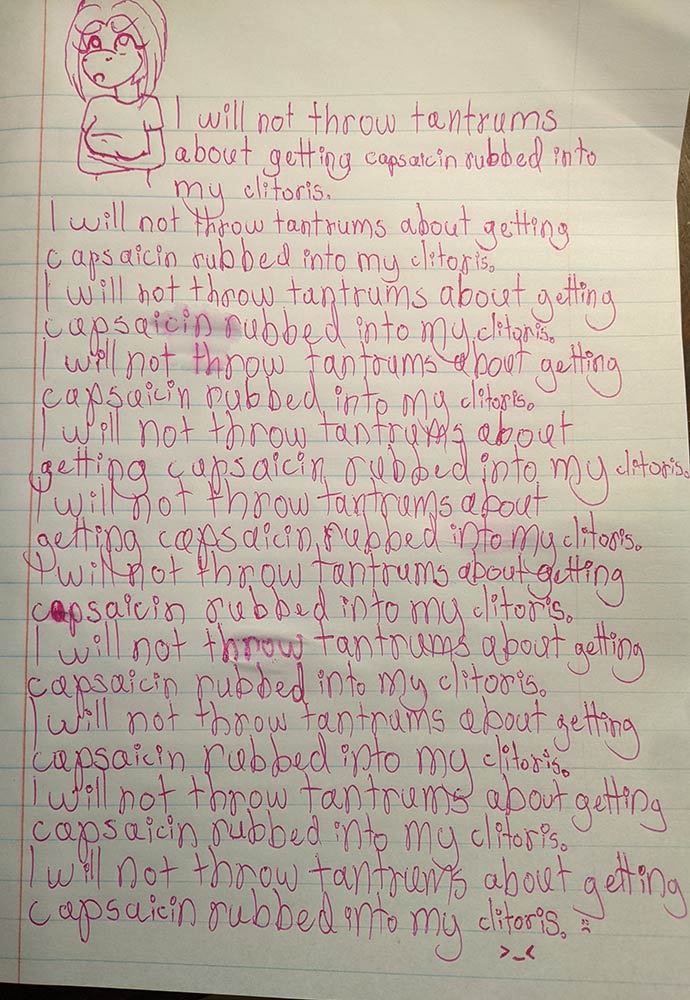 I will not throw tantrums
about getting capsaicin rubbed into
my clitoris.
I will not throw tantrums about getting
capsaicin rubbed into my clitoris.
I will not throw tantrums about getting
capsaicin rubbed into my clitoris.
I will not throw tantrums about getting
capsaicin rubbed into my clitoris.
I will not throw tantrums about
getting capsaicin rubbed into my clitoris.
I will not throw tantrums about
getting capsaicin rubbed into my clitoris.
I will not throw tantrums about getting
capsaicin rubbed into my clitoris.
I will not throw tantrums about getting
capsaicin rubbed into my clitoris.
I will not throw tantrums about getting
capsaicin rubbed into my clitoris.
I will not throw tantrums about getting
capsaicin rubbed into my clitoris.
I will not throw tantrums about getting
capsaicin rubbed into my clitoris. :(
>_<